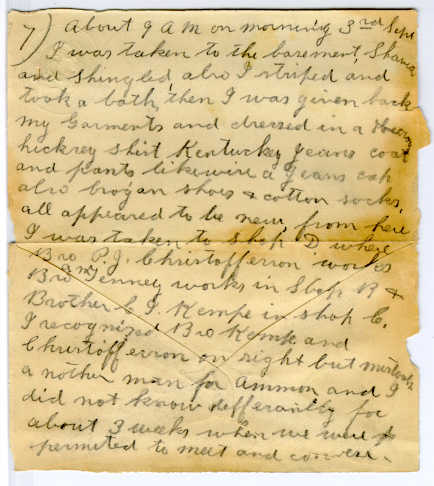 7) About 9 AM on morning 3rd Sept
I was taken to the basement, Shaved
and shingled also I striped and
took a bath, then I was given back
my Garments and dressed in a
hickrey shirt Kentuckey Jeans coat
and pants likewise a Jeans cap
also brogan shoes & cotton socks,
all appeared to be new, from here
I was taken to shop D where
Bro P.J. Christofferson works
Bro Am Tenney works in Shop B &
Brother C. I. Kempe in shop C.
I recognized Bro Kempe and
Christofferson on right but mistook
a nother man for Ammon and I
did not know defferantly for
about 3 weeks when we were
permited to meet and converse.